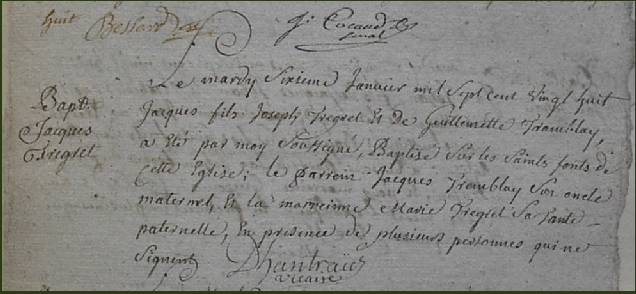 huit Bessard J. Cocaud
Le mardy Sixieme Janvier mil Sept cent vingt huit
Bapt.
Jacques
Tregret
Jacques fils Joseph Tregret Et de Guillemette Tramblay,
a eté par moy Soussigné, Baptisé Sur les Saints fonts de
cette Eglise; le parrein Jacques Tremblay Son oncle
maternel, Et la marreinne Marie Tregret Sa tante
paternelle, En presence de plusieurs personnes qui ne
Signent Dhantraiës
vicaire